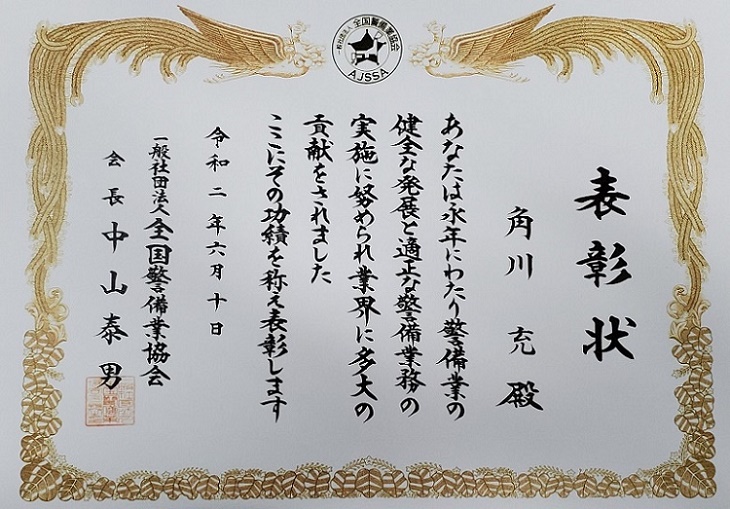 一般社団法人 全国警備業協会
AJSSA
表彰状
角川 充 殿
あなたは永年にわたり警備業の
健全な発展と適正な警備業務の
実施に努められ業界に多大の
貢献をされました
ここにその功績を称え表彰します
令和二年六月十日
一般社団法人 全国警備業協会
会長 中山泰男